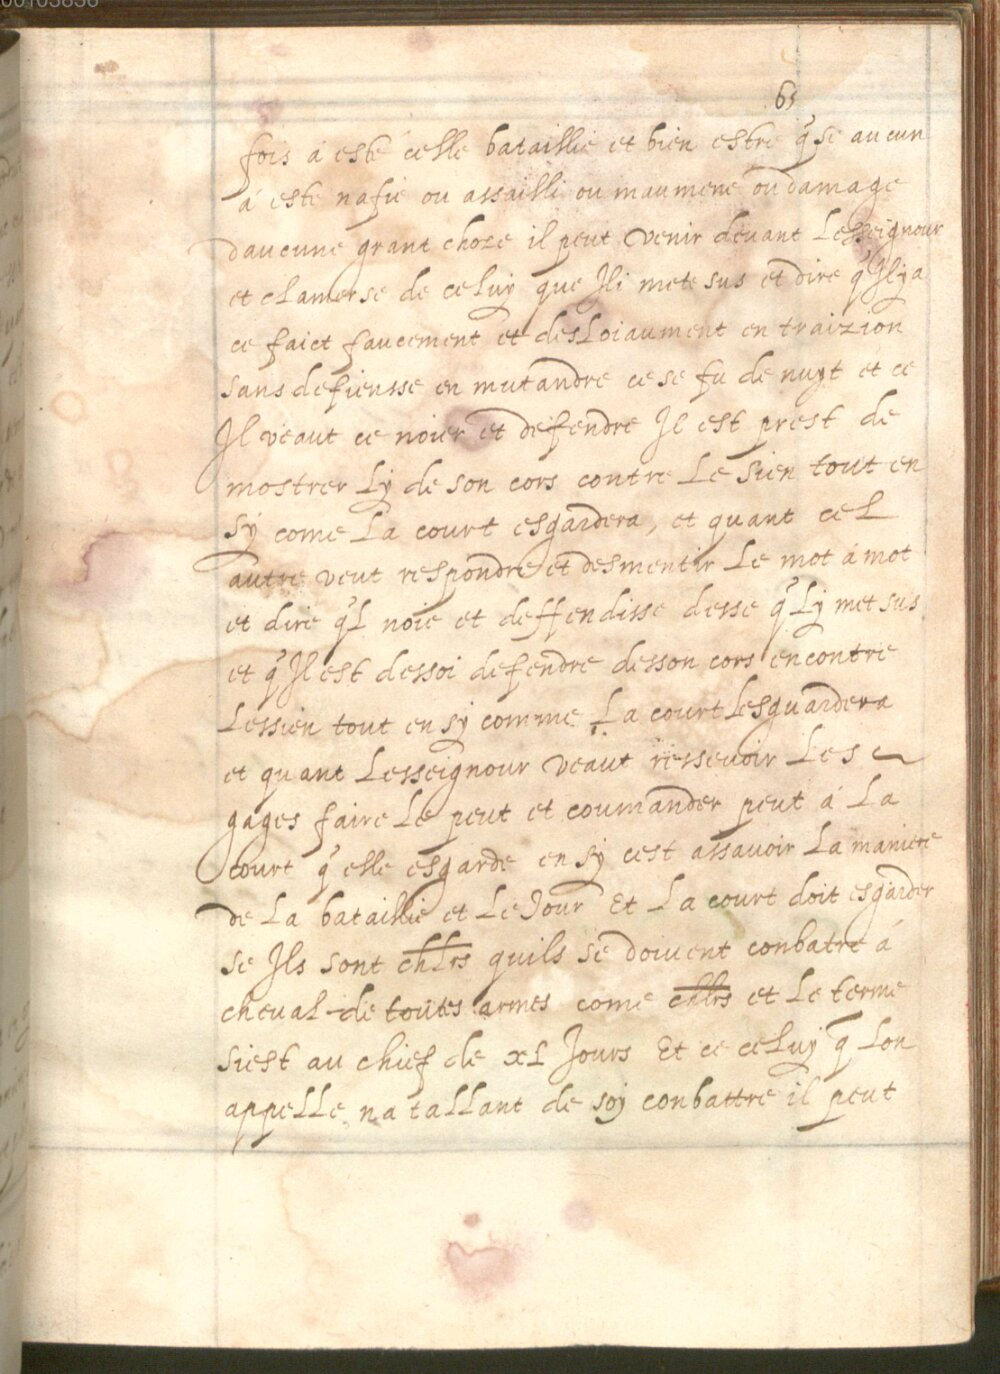 00103836
65
fois á esté celle bataillie et bien estre q̃ se aucun
á este nafié ou assailli ou maumené ou damage
daucune grant choze il peut venir devant Lesseignour
et clamerse de celuy que Ili mete sus et dire q̃ Ilya
ce faict faucement et desLoiaument en traizion
sans defiensse en mutandre ce se fu de nuyt et ce
Il veaut ce noier et defendre Il est prest de
mostrer Ly de son cors contre Le sien tout en
sy come La court esgardera, et quant cel
autre veut respondre et desmentir Le mot á mot
et dire q̃L noie et deffendisse desse q̃ Ly met sus
et q̃ Il est dessoi defendre desson cors encontre
Lessien tout en sy comme La court Lesguardera
et quant Lesseignour veaut ressevoir Les
gages faire Le peut et coumander peut á La
court q̃ elle esgarde en sy cest assavoir La maniere
de La bataillie et Le Jour Et La court doit esgarder
se Ils sont chlrs quils se doivent conbatre á
cheval de toutes armes come chlrs et Le terme
siest au chief de xL Jours Et ce celuy q̃ Lon
appelle na tallant de soy conbattre il peut